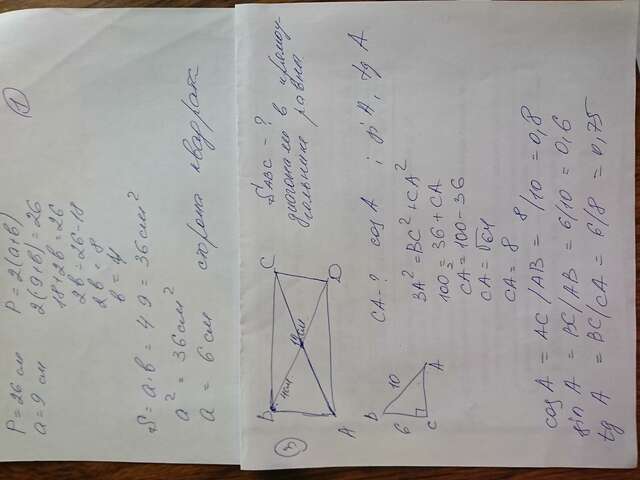 1
P = 26 см P = 2(a+b)
a = 9 см 2(9+b) = 26
18+2b = 26
2b = 26-18
2b = 8
b = 4
S = a·b = 4·9 = 36 см²
a² = 36 см²
a = 6 см сторона квадрата
3
B C
10 см
A D
SABC - ?
диагонали в прямоу
гольнике равны
CA - ? cos A ; sin A, tg A
B
6 10
C A
BA² = BC² + CA²
100 = 36 + CA
CA = 100 - 36
CA = √64
CA = 8
cos A = AC/AB = 8/10 = 0,8
sin A = BC/AB = 6/10 = 0,6
tg A = BC/CA = 6/8 = 0,75